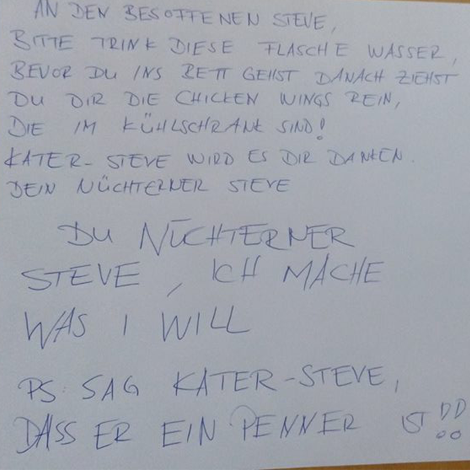 AN DEN BESOFFENEN STEVE,
BITTE TRINK DIESE FLASCHE WASSER,
BEVOR DU INS BETT GEHST DANACH ZIEHST
DU DIR DIE CHICKEN WINGS REIN,
DIE IM KÜHLSCHRANK SIND!
KATER-STEVE WIRD ES DIR DANKEN.
DEIN NÜCHTERNER STEVE
DU NÜCHTERNER
STEVE, ICH MACHE
WAS I WILL
PS: SAG KATER-STEVE,
DASS ER EIN PENNER IST!!